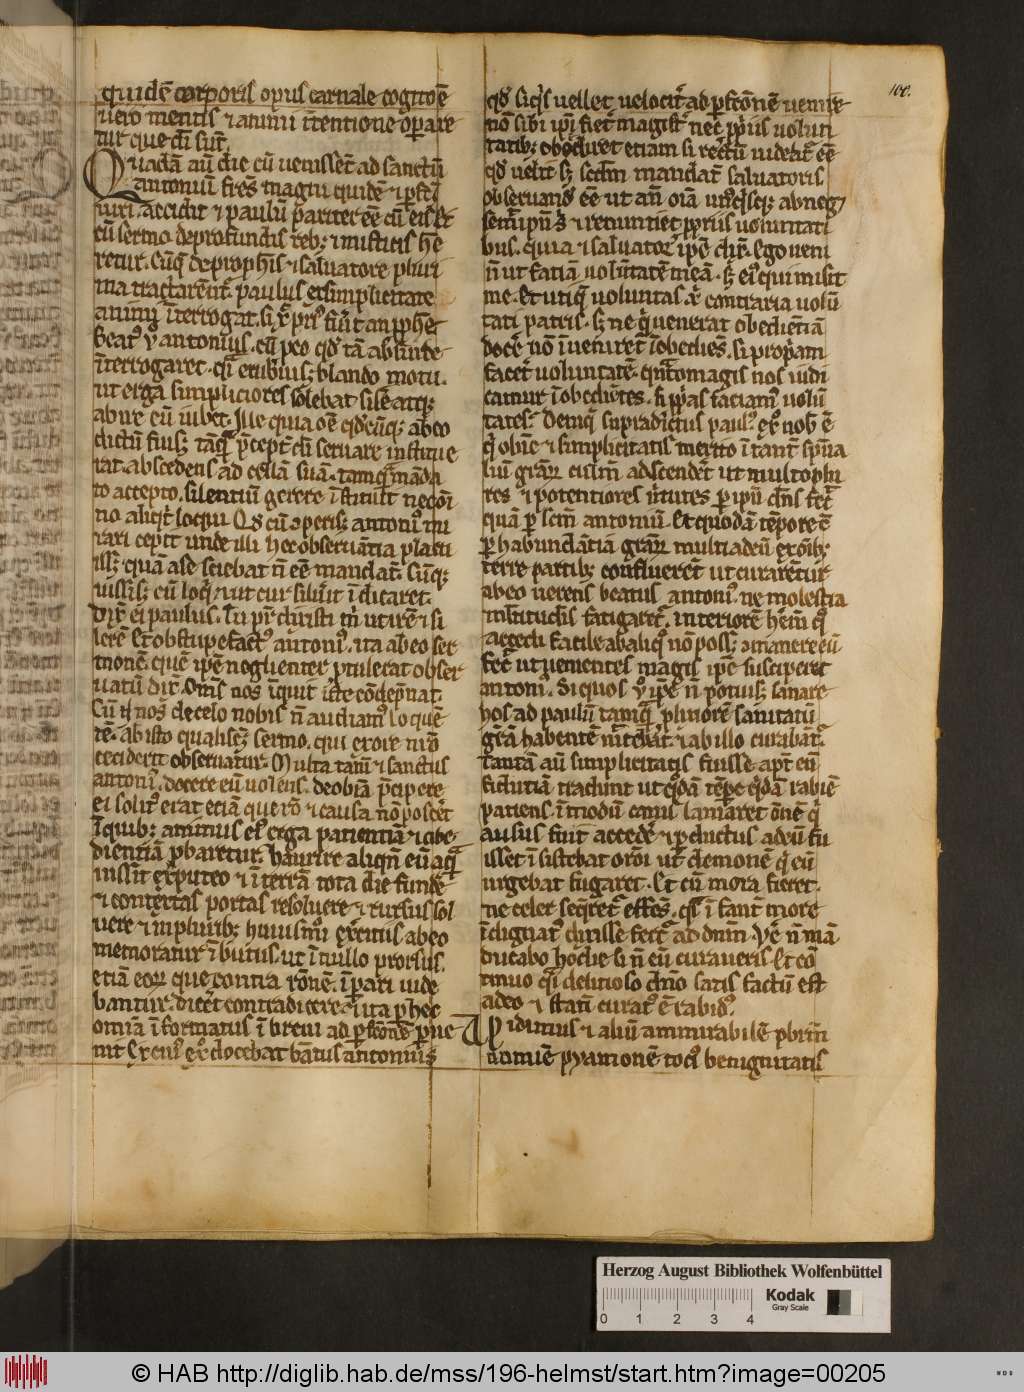 quidē corporis opus carnale cogitōē
uero mentis ⁊ animi ītentione operare
tur que cū sūt.
Quadā aū die cū uenissēt ad sanctū
antoniū frēs magni quidē ⁊ pfcī
uiri. accidit ⁊ paulū pariter eē cū eis. Et
cū sermo de profundis reb; ⁊ misticis hē
retur. Cūq; de prophīs ⁊ saluatore pluri
ma tractarēnt. paulus ex simplicitate
animi īterrogat. si
beatus antonius. cū pro qd tā absurde
īterrogaret. erubuis; blando motu.
ut erga simpliciores solebat silē atq;
abire eū iubet. Ille quia oē qdcūq; ab eo
dictū fuis; tāq pcept cū seruare instituē
rat. abscedens ad cellā suā. tamq mādā
to accepto. silentiū gerere īstituit nec oī
no aliqt loqui. Qd cū cōperis; antoni mi
rari cepit unde illi hec obseruātia placu
iss; quam a se sciebat n eē mandat. Cūq;
iussis; eū loq ⁊ ut cur siluit ī dicaret.
Dix ei paulus. Tu pr dixisti m ut irē ⁊ si
lerē. Et obstupefact antoni. ita ab eo ser
monē quē ipē neglienter ptulerat obser
uatū dix. Oms nos īquit iste cōdēpnat.
Cū n nos de celo nobis n audiam loquē
tē. ab isto qualisq; sermo. qui ex ore nro
ceciderit obseruatur. Multa tam ⁊ sanctus
antoni. docere eū uolens. de obīā pcipere
ei solit erat etiā que rō ⁊ causa nō poscēt
ī quib; animus ei erga patientiā ⁊ obe
dientiā pbaretur. haurire aliqn eū aq
iussit ex puteo ⁊ ī terrā tota die fundē
⁊ contextas portas resoluere ⁊ rursus sol
uere ⁊ ī plurib; huiusmo exercitiis ab eo
memoratur ībutus. ut ī nullo prorsus.
etiā eor que contra rōnē. īpari uide
bantur. dicet contradicere. ⁊ ita p hec
omīa īformatus ī breui ad pfcōnē pue
nit. Ex cui exo docebat beatus antonius
100.
qd siqs uellet uelocit ad pfcōnē uenire
nō sibi ipi fiet magist nec ppriis uolun
tatib; obediret etiam si rectū uidetur eē
qd uelit s; scdm mandat saluatoris
obseruand eē ut an oīa unqsq; abneg;
semipm s; ⁊ renuntiet ppriis uoluntati
bus. quia ⁊ saluator ipē dix. Ego ueni
n ut faciā uolūtatē meā. s; ei qui misit
me. Et utiq uoluntas x contraria uolū
tati patris. s; ne q uenerat obediētiā
docē nō īueniret īobediēs. si propriam
facet uoluntatē. qntomagis nos iudi
camur īobediētes. si ppas faciam uolū
tates. Demq supradictus paul ex nob ē
q obīē ⁊ simplicitatis merito ī tant spūa
liū gram eiusm ascendet ut multo plu
res ⁊ potentiores ututes p ipū dns fec
quā p scm antoniū. Et quodā tēpore cū
p habundātiā gram multi ad eū ex oīb;
terre partib; confluerēt ut curarētur
ab eo uerens beatus antoni. ne molestia
multitudis fatigaret. interiorē hērm q
accedi facile ab aliq nō poss; manere eū
fec ut uenientes magis ipe susciperet
antoni. Si quos uo ipē n potuis; sanare
hos ad paulū tamq pleniorē sanitatū
gram habentē mittebat. ⁊ ab illo curabat.
tantā aū simplicitatis fuisse apt eū
fiduciā tradunt ut qdā tēpe qdā rabiē
patiens. ī modū canis lamaret oēnē q
ausus fuit accedē ⁊ pductus ad eū fu
isset īsistebat oroi ut demonē q eū
urgebat fugaret. Et cū mora fieret.
ne celer seqret effes. qsi īfanti more
īdignat dixisse fert ad dnm. Ve n mā
ducabo hodie si n eū curaueris. Et cō
tinuo qsi delitioso dno satis factū est
ab eo ⁊ stati curat ē rabid.
Vidimus ⁊ aliū ammirabilē pbrm
nomīe pyamonē toci benignitatis
Herzog August Bibliothek Wolfenbüttel
Kodak
Gray Scale
0 1 2 3 4
© HAB http://diglib.hab.de/mss/196-helmst/start.htm?image=00205